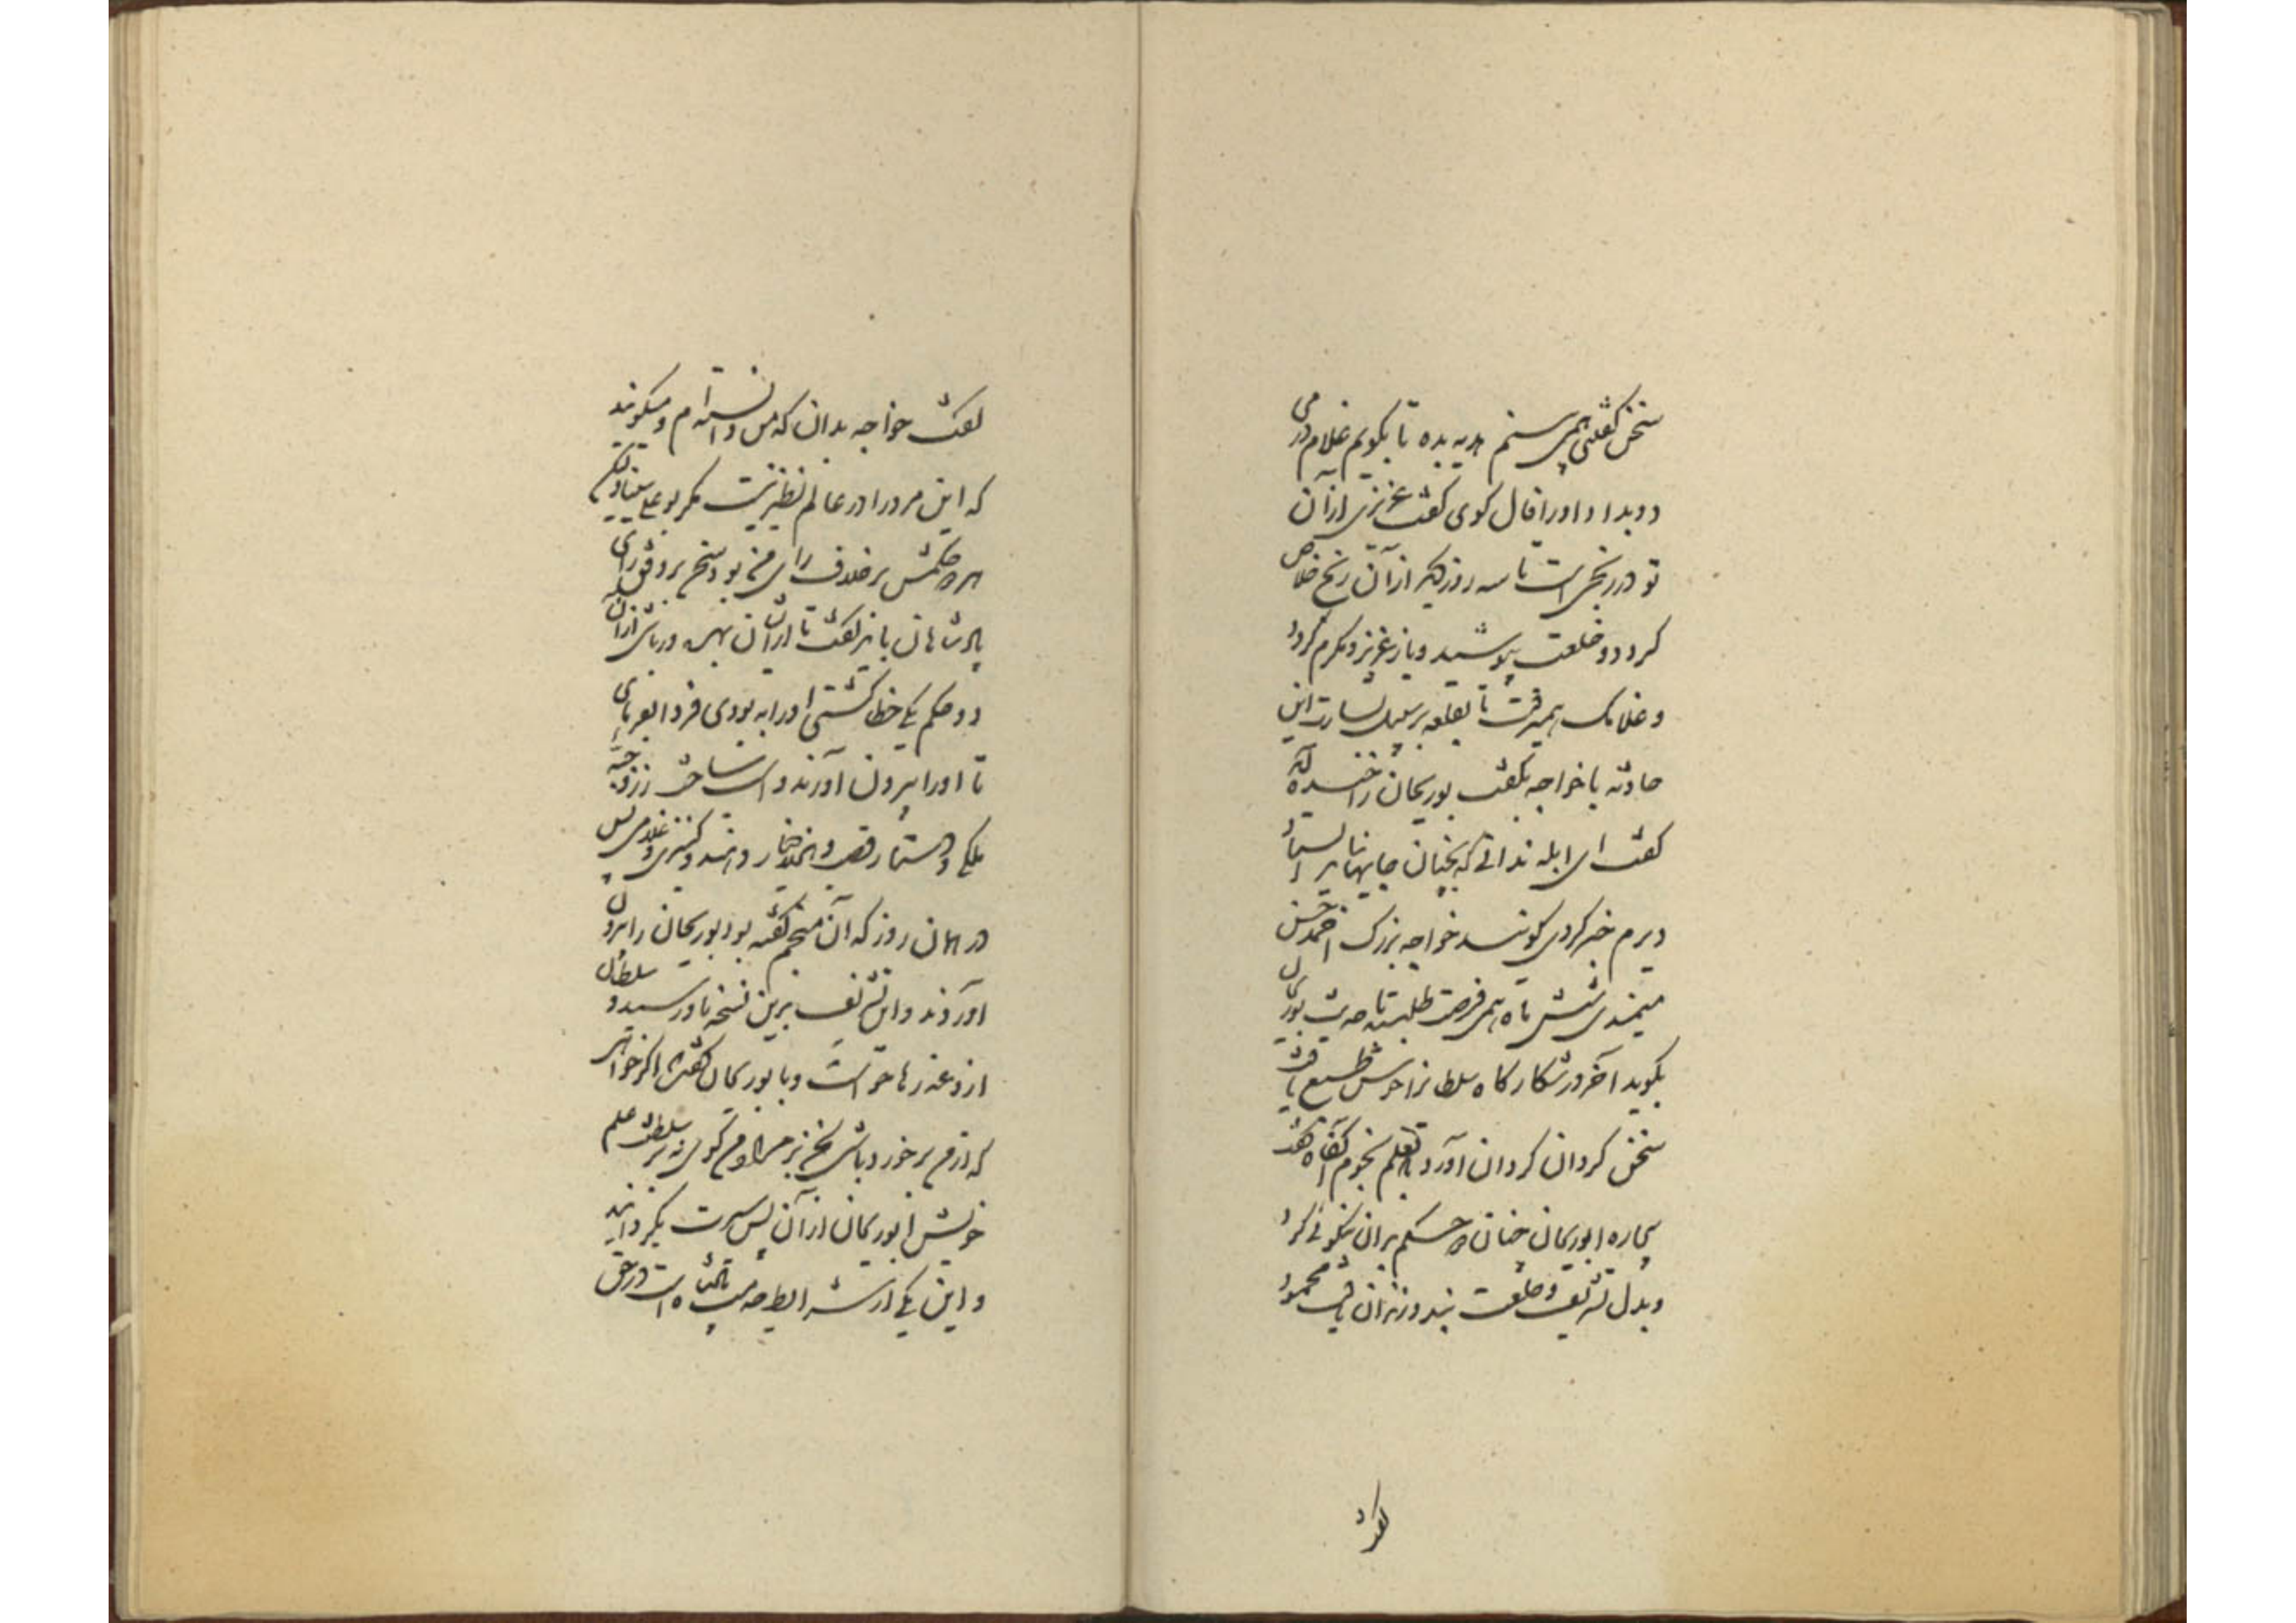 سخن گفتنی همی بینم هدیه بده تا بگویم غلام درمی
دو بداد او را فال گوی گفت عزیزی از آن
تو در رنجی است تا سه روز دیگر از آن رنج خلاص
گردد و خلعت پوشید و باز عزیز و مکرم گردد
و غلامک همیرفت تا بقلعه بر سبیل بشارت این
حادثه با خواجه بگفت بوریحان را خنده آمد
گفت ای ابله ندانی که بچنان جایها نباید ایستاد
دو درم خسر کردی گویند خواجه بزرگ احمد حسن
میمندی شش ماه همی فرصت طلبید تا حدیث بوریحان
بگوید آخر در شکارگاه سلطان را خوش طبع یافت
سخن گردان گردان آورد تا بعلم نجوم آنگاه گفت
بیچاره ابوریحان چنان دو حکم بدان نیکوئی کرد
و بدل تشریف و خلعت بند و زندان یافت محمود
گفت
گفت خواجه بدان که من دانسته‌ام و میگویند
که این مرد را در عالم نظیر نیست مگر بوعلی سینا ولیکن
هر دو حکمش بر خلاف رای من بود و سخن بر وفق رای
پادشاهان باید گفت تا از ایشان بهره‌ور باشی از آن
دو حکم یکی خطا گشتی او را به بودی فردا بفرمای
تا او را بیرون آورند و اسب ساخت زر و جبه
ملکی و دستار قصب و هزار دینار و کنیزی و غلامی پس
در همان روز که آن منجم گفته بود بوریحان را بیرون
آوردند و این تشریف برین نسخه باو رسید و سلطان
ازو عذرها خواست و با بوریحان گفت اگر خواهی
که از من برخوردار باشی سخن بر مراد من گوی نه بر سلطنت علم
خویش ابوریحان از آن پس سیرت بگردانید
و این یکی از شرایط خدمت پادشاه است در حق